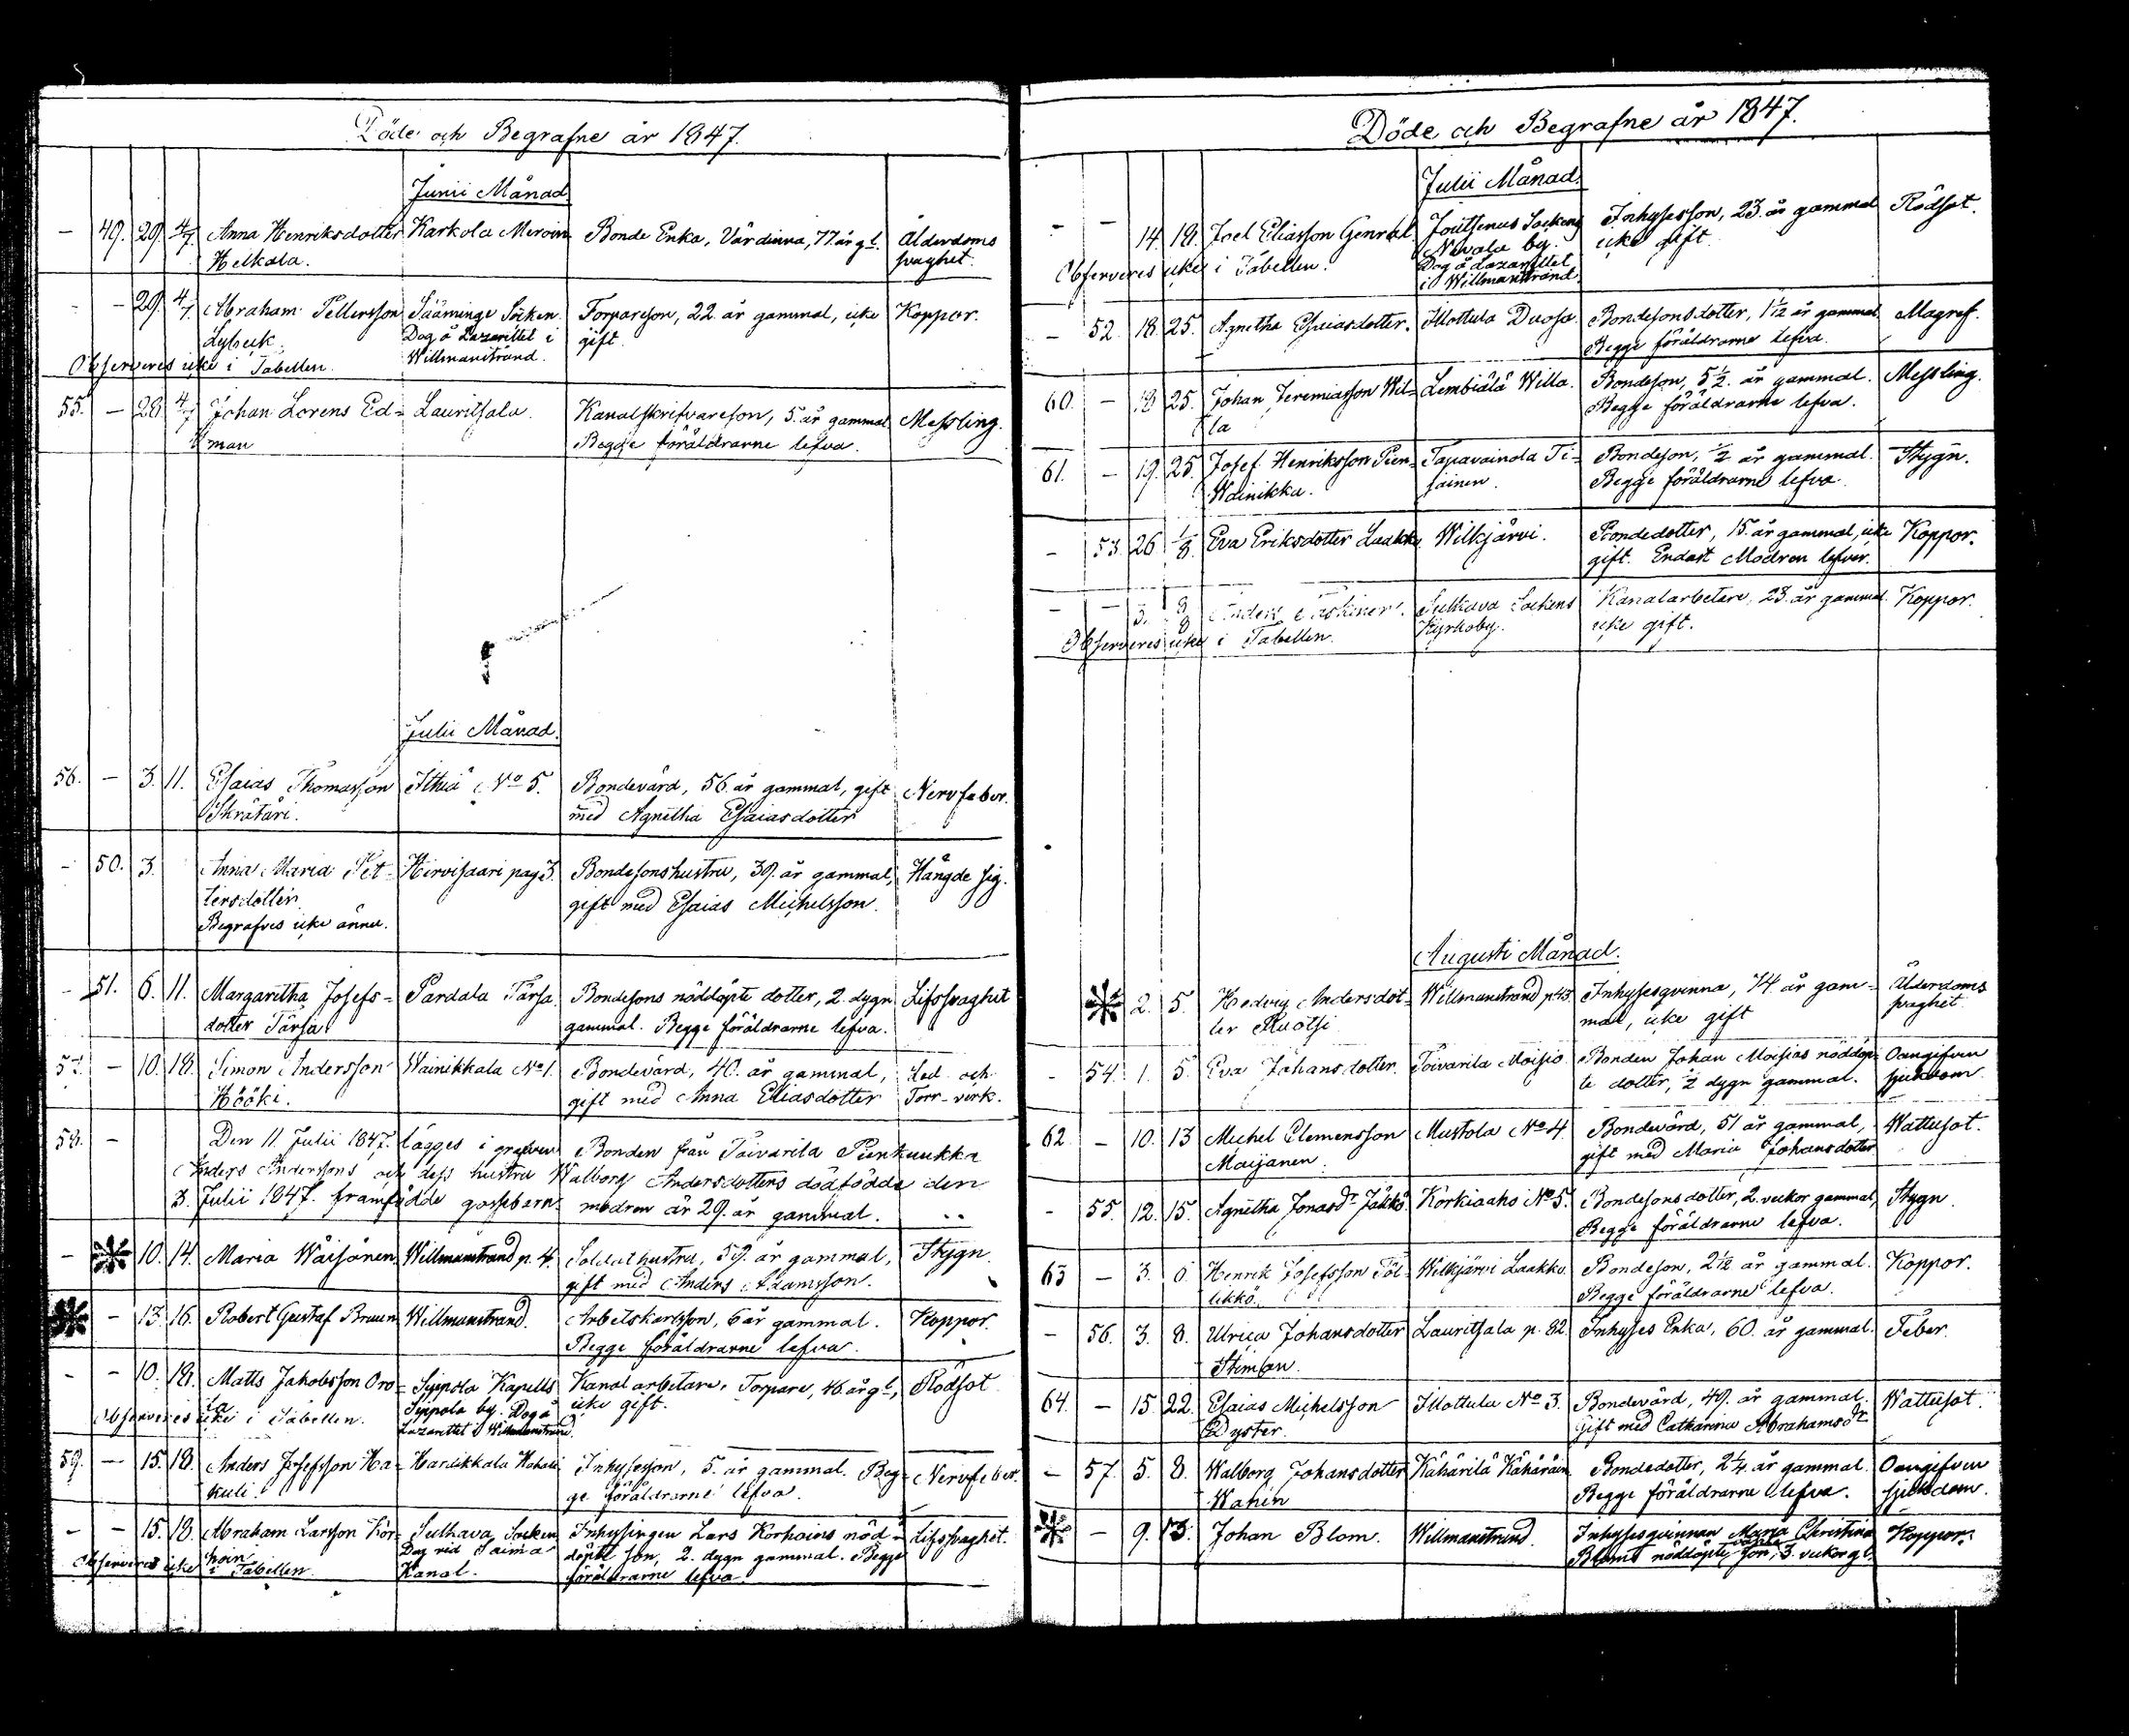 Döde och Begrafne år 1847.
Junii Månad
— 49. 29. 4/7 Anna Henriksdotter Karkola Meroin Bonde Enka, Värdinna, 77 år gl. Ålderdoms
Helkala. svaghet.
- - 29. 4/7 Abraham Pettersson Sääminge Socken. Torpareson, 22 år gammal, icke Koppor.
Lybeck. Dog å Lazarettet i gift.
Observeres icke i Tabellen. Willmanstrand.
55. — 28 4/7 Johan Lorens Ed= Lauritsala. Kanalskrifvareson, 5. år gammal Messling.
man Begge föräldrarne lefva.
Julii Månad.
56. — 3. 11. Esaias Thomasson Ithiä No 5. Bondevärd, 56. år gammal, gift Nervfeber.
Skrätäri. med Agnetha Esaiasdotter
- 50. 3. Anna Maria Pet= Hirvisaari pag 3. Bondesonshustru, 39. år gammal, Hängde sig.
tersdotter. gift med Esaias Michelsson.
Begrafves icke ännu.
- 51. 6. 11. Margaretha Josefs= Pardala Tärsa. Bondesons nöddöpte dotter, 2. dygn Lifssvaghet
dotter Tärsa gammal. Begge föräldrarne lefva.
57. — 10. 18. Simon Andersson Wainikkala No 1. Bondevärd, 40. år gammal, Led- och
Hööki. gift med Anna Eliasdotter Torr-värk.
58. — Den 11. Julii 1847. lägges i grafven Bonden från Toivarila Punkuukka
Anders Anderssons och dess hustru Walborg Andersdotters dödfödde den
3. Julii 1847. framfödde gossebarn modren är 29. år gammal.
- 10. 14. Maria Wäisänen Willmanstrand p. 4. Soldat hustru, 59. år gammal, Stygn.
gift med Anders Adamsson.
— 13. 16. Robert Gustaf Bruun Willmanstrand. Arbetskarlsson, 6 år gammal. Koppor.
Begge föräldrarne lefva.
- - 10. 18. Matts Jakobsson Oro= Sippola Kapells Kanal arbetare, Torpare, 46 år gl, Rödsot
la Sippola by. Dog å icke gift.
Observeres icke i Tabellen. Lazarettet i Willmanstrand.
59. — 15. 18. Anders Josefsson Ha= Hardikkala Hakuli Inhysesson, 5. år gammal. Beg= Nervfeber.
kuli. ge föräldrarne lefva.
- - 15. 18. Abraham Larsson Kor= Sulkava Socken Inhysingen Lars Korhoins nöd= Lifssvaghet.
hoin Dog vid Saima döpte son, 2. dygn gammal. Begge
Observeres icke i Tabellen. Kanal. föräldrarne lefva.
Döde och Begrafne år 1847.
Julii Månad.
- - 14 18 Joel Eliasson Genral. Joutsenus Sockens Inhysesson, 23. år gammal Rödsot.
Nevala by. icke gift
Observeres icke i Tabellen. Dog å Lazarettet
i Willmanstrand.
— 52. 18. 25. Agnetha Esaiasdotter. Ilottula Duosa. Bondesonsdotter, 1 1/12 år gammal. Magref.
Begge föräldrarne lefva.
60. — 18 25. Johan Jeremiasson Wil= Lembiälä Willa. Bondeson, 5 1/2. år gammal. Messling.
la Begge föräldrarne lefva.
61. — 19. 25. Josef Henriksson Pien= Tapavainola Ti= Bondeson, 1/2 år gammal. Stygn.
Wainikka. jainen. Begge föräldrarne lefva
- 53. 26 1/8. Eva Eriksdotter Laakko Wilkjärvi. Bondedotter, 15. år gammal, icke Koppor.
gift. Endast Modren lefver.
- - 3. 8/8 Taskinen. Sulkava Sockens Kanalarbetare, 23. år gammal. Koppor.
Observeres icke i Tabellen. Kyrkoby. icke gift.
Augusti Månad.
2. 5. Hedvig Andersdot= Willmanstrand p 43. Inhysesqvinna, 74. år gam= Ålderdoms
ter Ruotsi mal, icke gift svaghet
- 54. 1. 5. Eva Johansdotter. Toivarila Moisio Bonden Johan Moisias nöddöp= Oangifven
te dotter, 1/2 dygn gammal. sjukdom.
62. — 10. 13 Michel Clemensson Mustola No 4. Bondevärd, 51 år gammal, Wattusot.
Maijanen. gift med Maria Johansdotter
- 55. 12. 15. Agnetha Jonasdr Jäkkö. Korkiaaho No 5. Bondesonsdotter, 2. veckor gammal, Stygn.
Begge föräldrarne lefva.
63 — 3. 8. Henrik Josefsson Töl= Wilkjärvi Laakko. Bondeson, 2 1/2 år gammal. Koppor.
likkö. Begge föräldrarne lefva.
- 56. 3. 8. Ulrica Johansdotter Lauritsala p. 82. Inhyses Enka, 60. år gammal. Feber.
Stimban.
64. — 15. 22. Esaias Michelsson Ilottula No 3. Bondevärd, 49. år gammal. Wattusot.
Dyster. Gift med Catharina Abrahamsdr
- 57. 5. 8. Walborg Johansdotter Kähärilä Kähäräin. Bondedotter, 2 1/4. år gammal. Oangifven
Wanin Begge föräldrarne lefva. sjukdom.
— 9. 13. Johan Blom. Willmanstrand. Inhysesqvinnan Maria Christina Koppor.
Bloms nöddöpte son, 3. veckor gl.